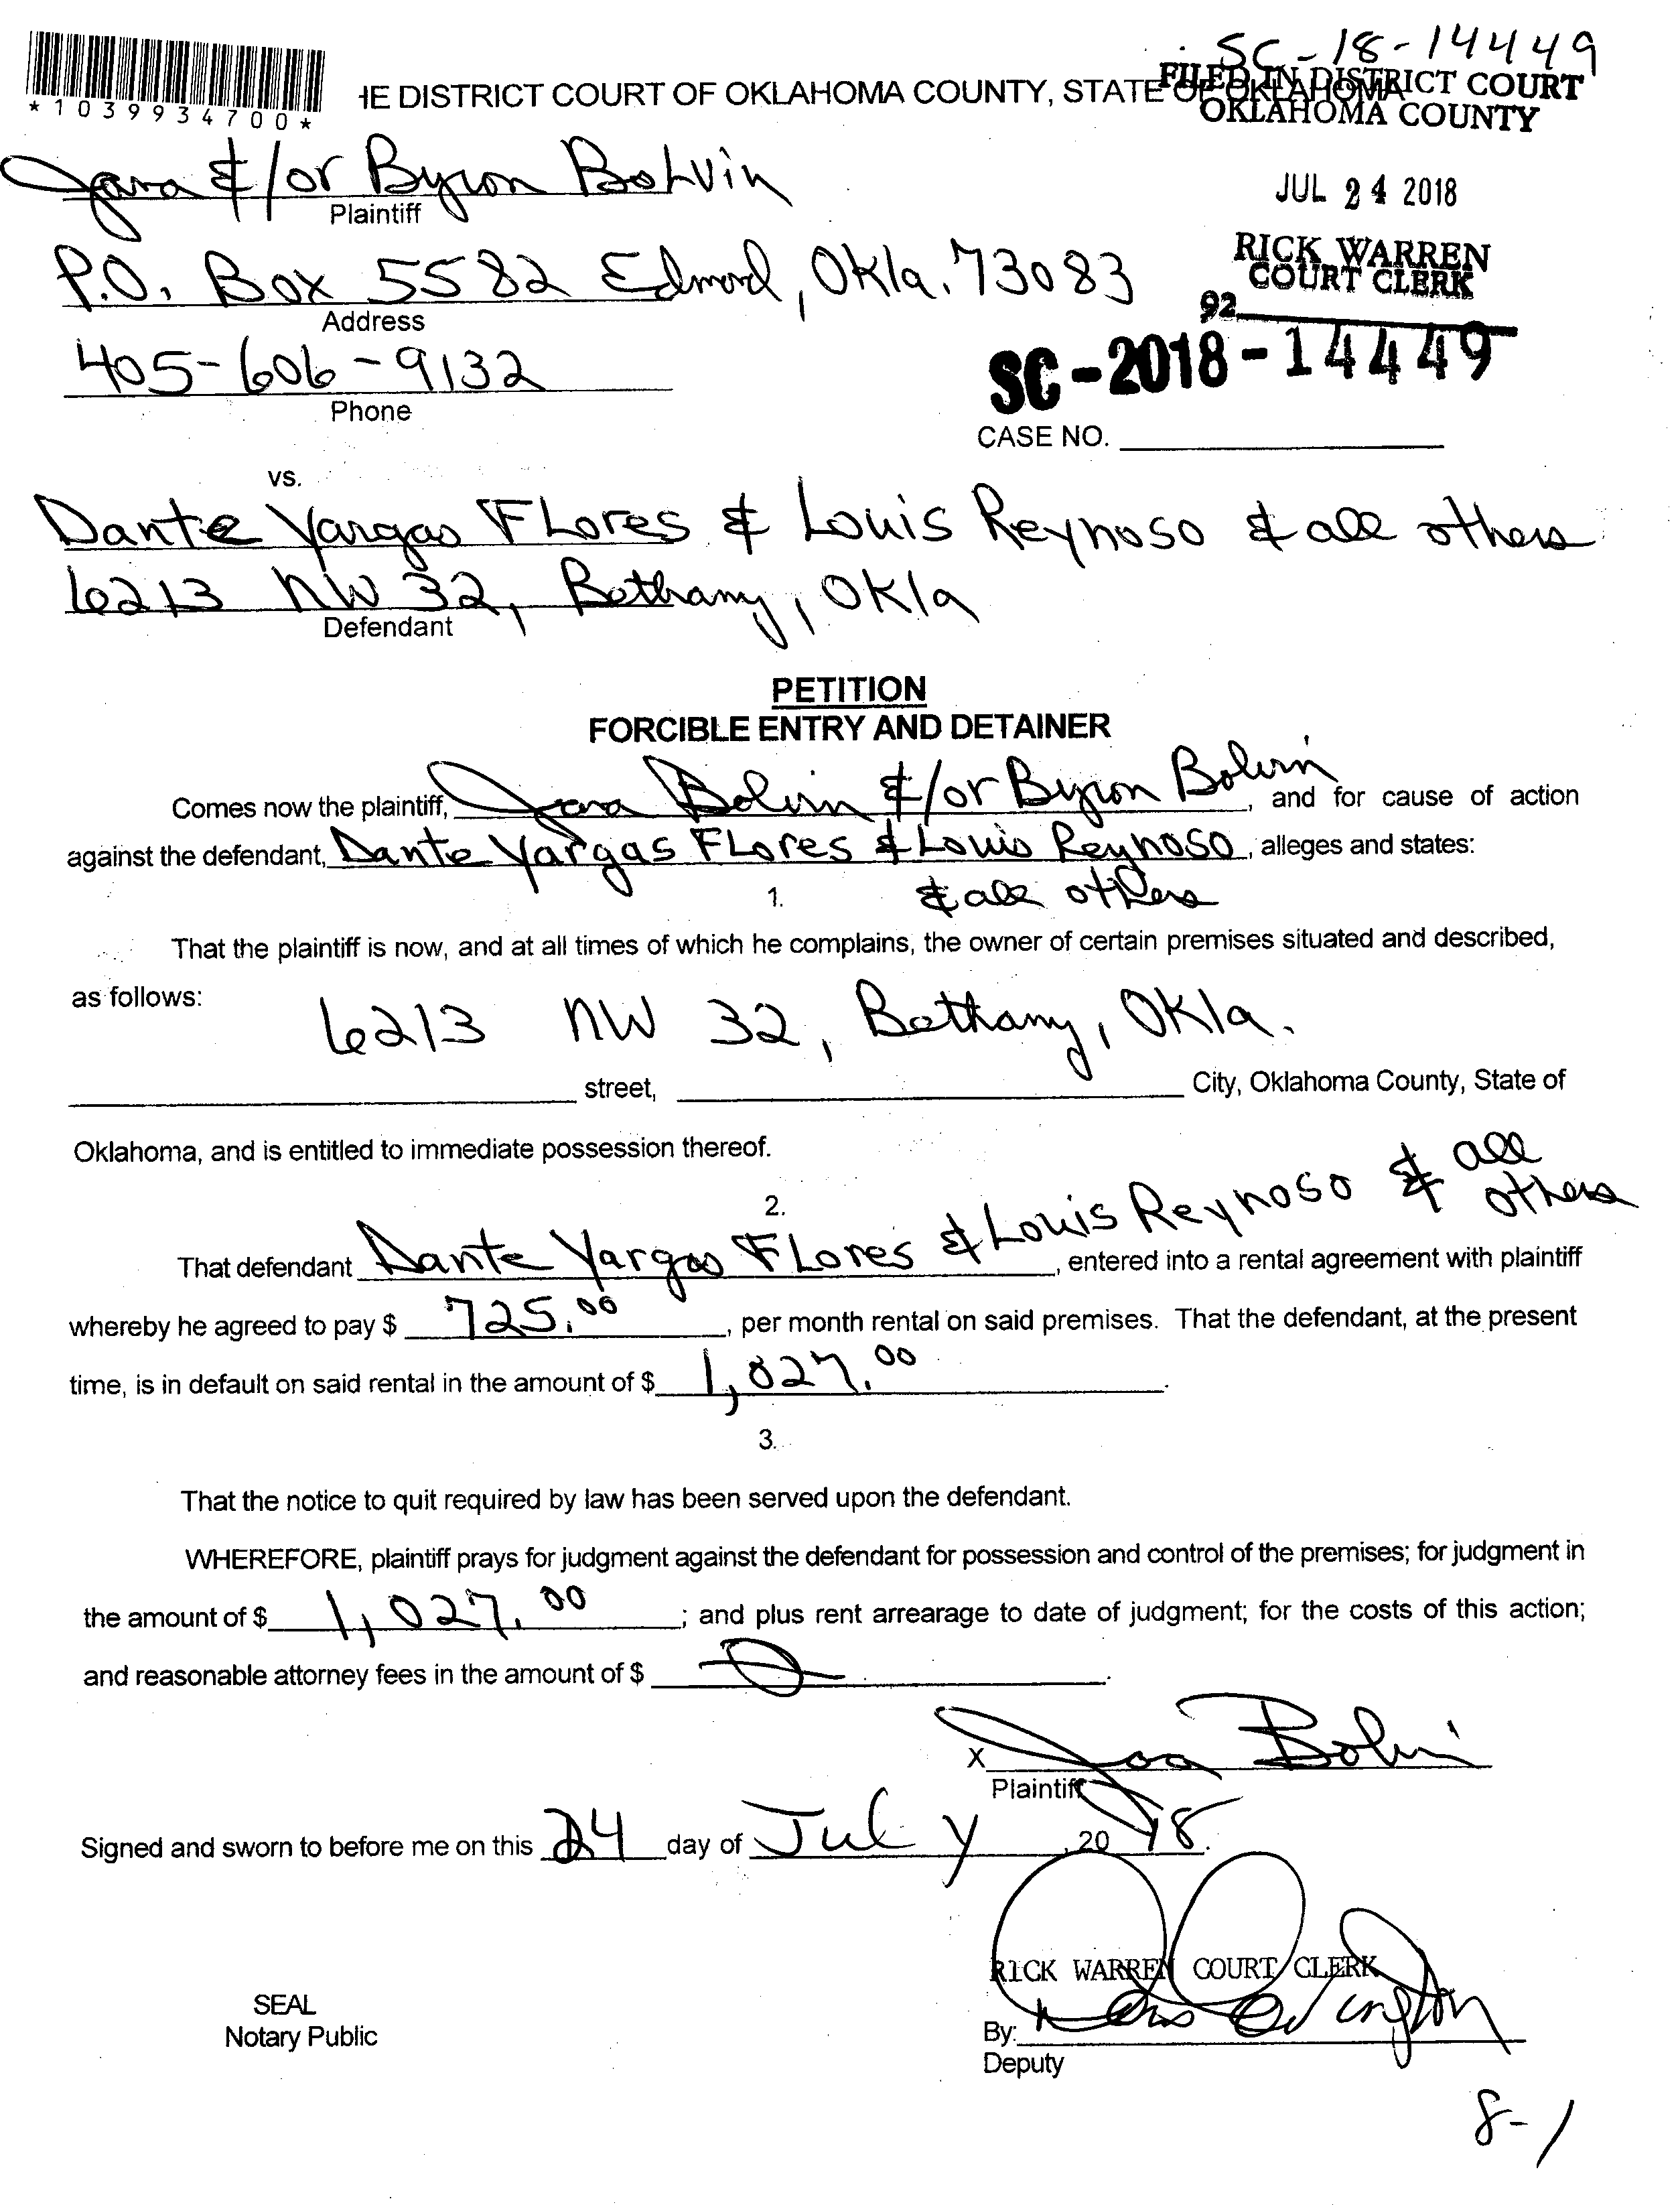 SC-18-14449
*1039934700*
HE DISTRICT COURT OF OKLAHOMA COUNTY, STATE OF OKLAHOMA
FILED IN DISTRICT COURT
OKLAHOMA COUNTY
& /or Byron Bolvin
Plaintiff
JUL 24 2018
P.O. Box 5582 Edmond, Okla. 73083
Address
RICK WARREN
COURT CLERK
92
405-606-9132
Phone
SC-2018-14449
CASE NO.
vs.
Dante Vargas Flores & Louis Reynoso & all others
6213 NW 32, Bethany, Okla
Defendant
PETITION
FORCIBLE ENTRY AND DETAINER
Comes now the plaintiff, Bolvin &/or Byron Bolvin, and for cause of action
against the defendant, Dante Vargas Flores & Louis Reynoso, alleges and states:
& all others
1.
That the plaintiff is now, and at all times of which he complains, the owner of certain premises situated and described,
as follows:
6213 NW 32, Bethany, Okla.
street, City, Oklahoma County, State of
Oklahoma, and is entitled to immediate possession thereof.
2.
That defendant Dante Vargas Flores & Louis Reynoso & all others, entered into a rental agreement with plaintiff
whereby he agreed to pay $ 725.00, per month rental on said premises. That the defendant, at the present
time, is in default on said rental in the amount of $ 1,027.00.
3.
That the notice to quit required by law has been served upon the defendant.
WHEREFORE, plaintiff prays for judgment against the defendant for possession and control of the premises; for judgment in
the amount of $ 1,027.00; and plus rent arrearage to date of judgment; for the costs of this action;
and reasonable attorney fees in the amount of $ 0.
X Bolvin
Plaintiff
Signed and sworn to before me on this 24 day of July, 20 18.
RICK WARREN COURT CLERK
SEAL
Notary Public
By:
Deputy
8-1